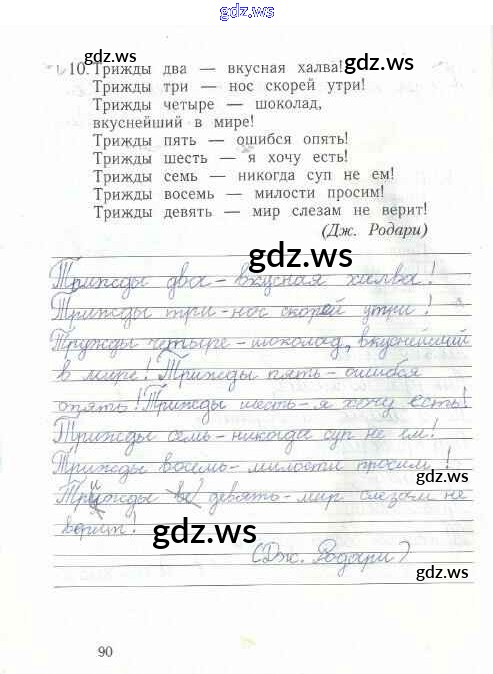 gdz.ws
gdz.ws gdz.ws
10. Трижды два — вкусная халва!
Трижды три — нос скорей утри!
Трижды четыре — шоколад,
вкуснейший в мире!
Трижды пять — ошибся опять!
Трижды шесть — я хочу есть!
Трижды семь — никогда суп не ем!
Трижды восемь — милости просим!
Трижды девять — мир слезам не верит!
(Дж. Родари)
gdz.ws
Трижды два - вкусная халва!
Трижды три - нос скорей утри!
Трижды четыре - шоколад, вкуснейший
в мире! Трижды пять - ошибся
опять! Трижды шесть - я хочу есть!
Трижды семь - никогда суп не ем!
Трижды восемь - милости просим!
Трижды девять - мир слезам не
верит!
gdz.ws
(Дж. Родари)
gdz.ws
gdz.ws
90